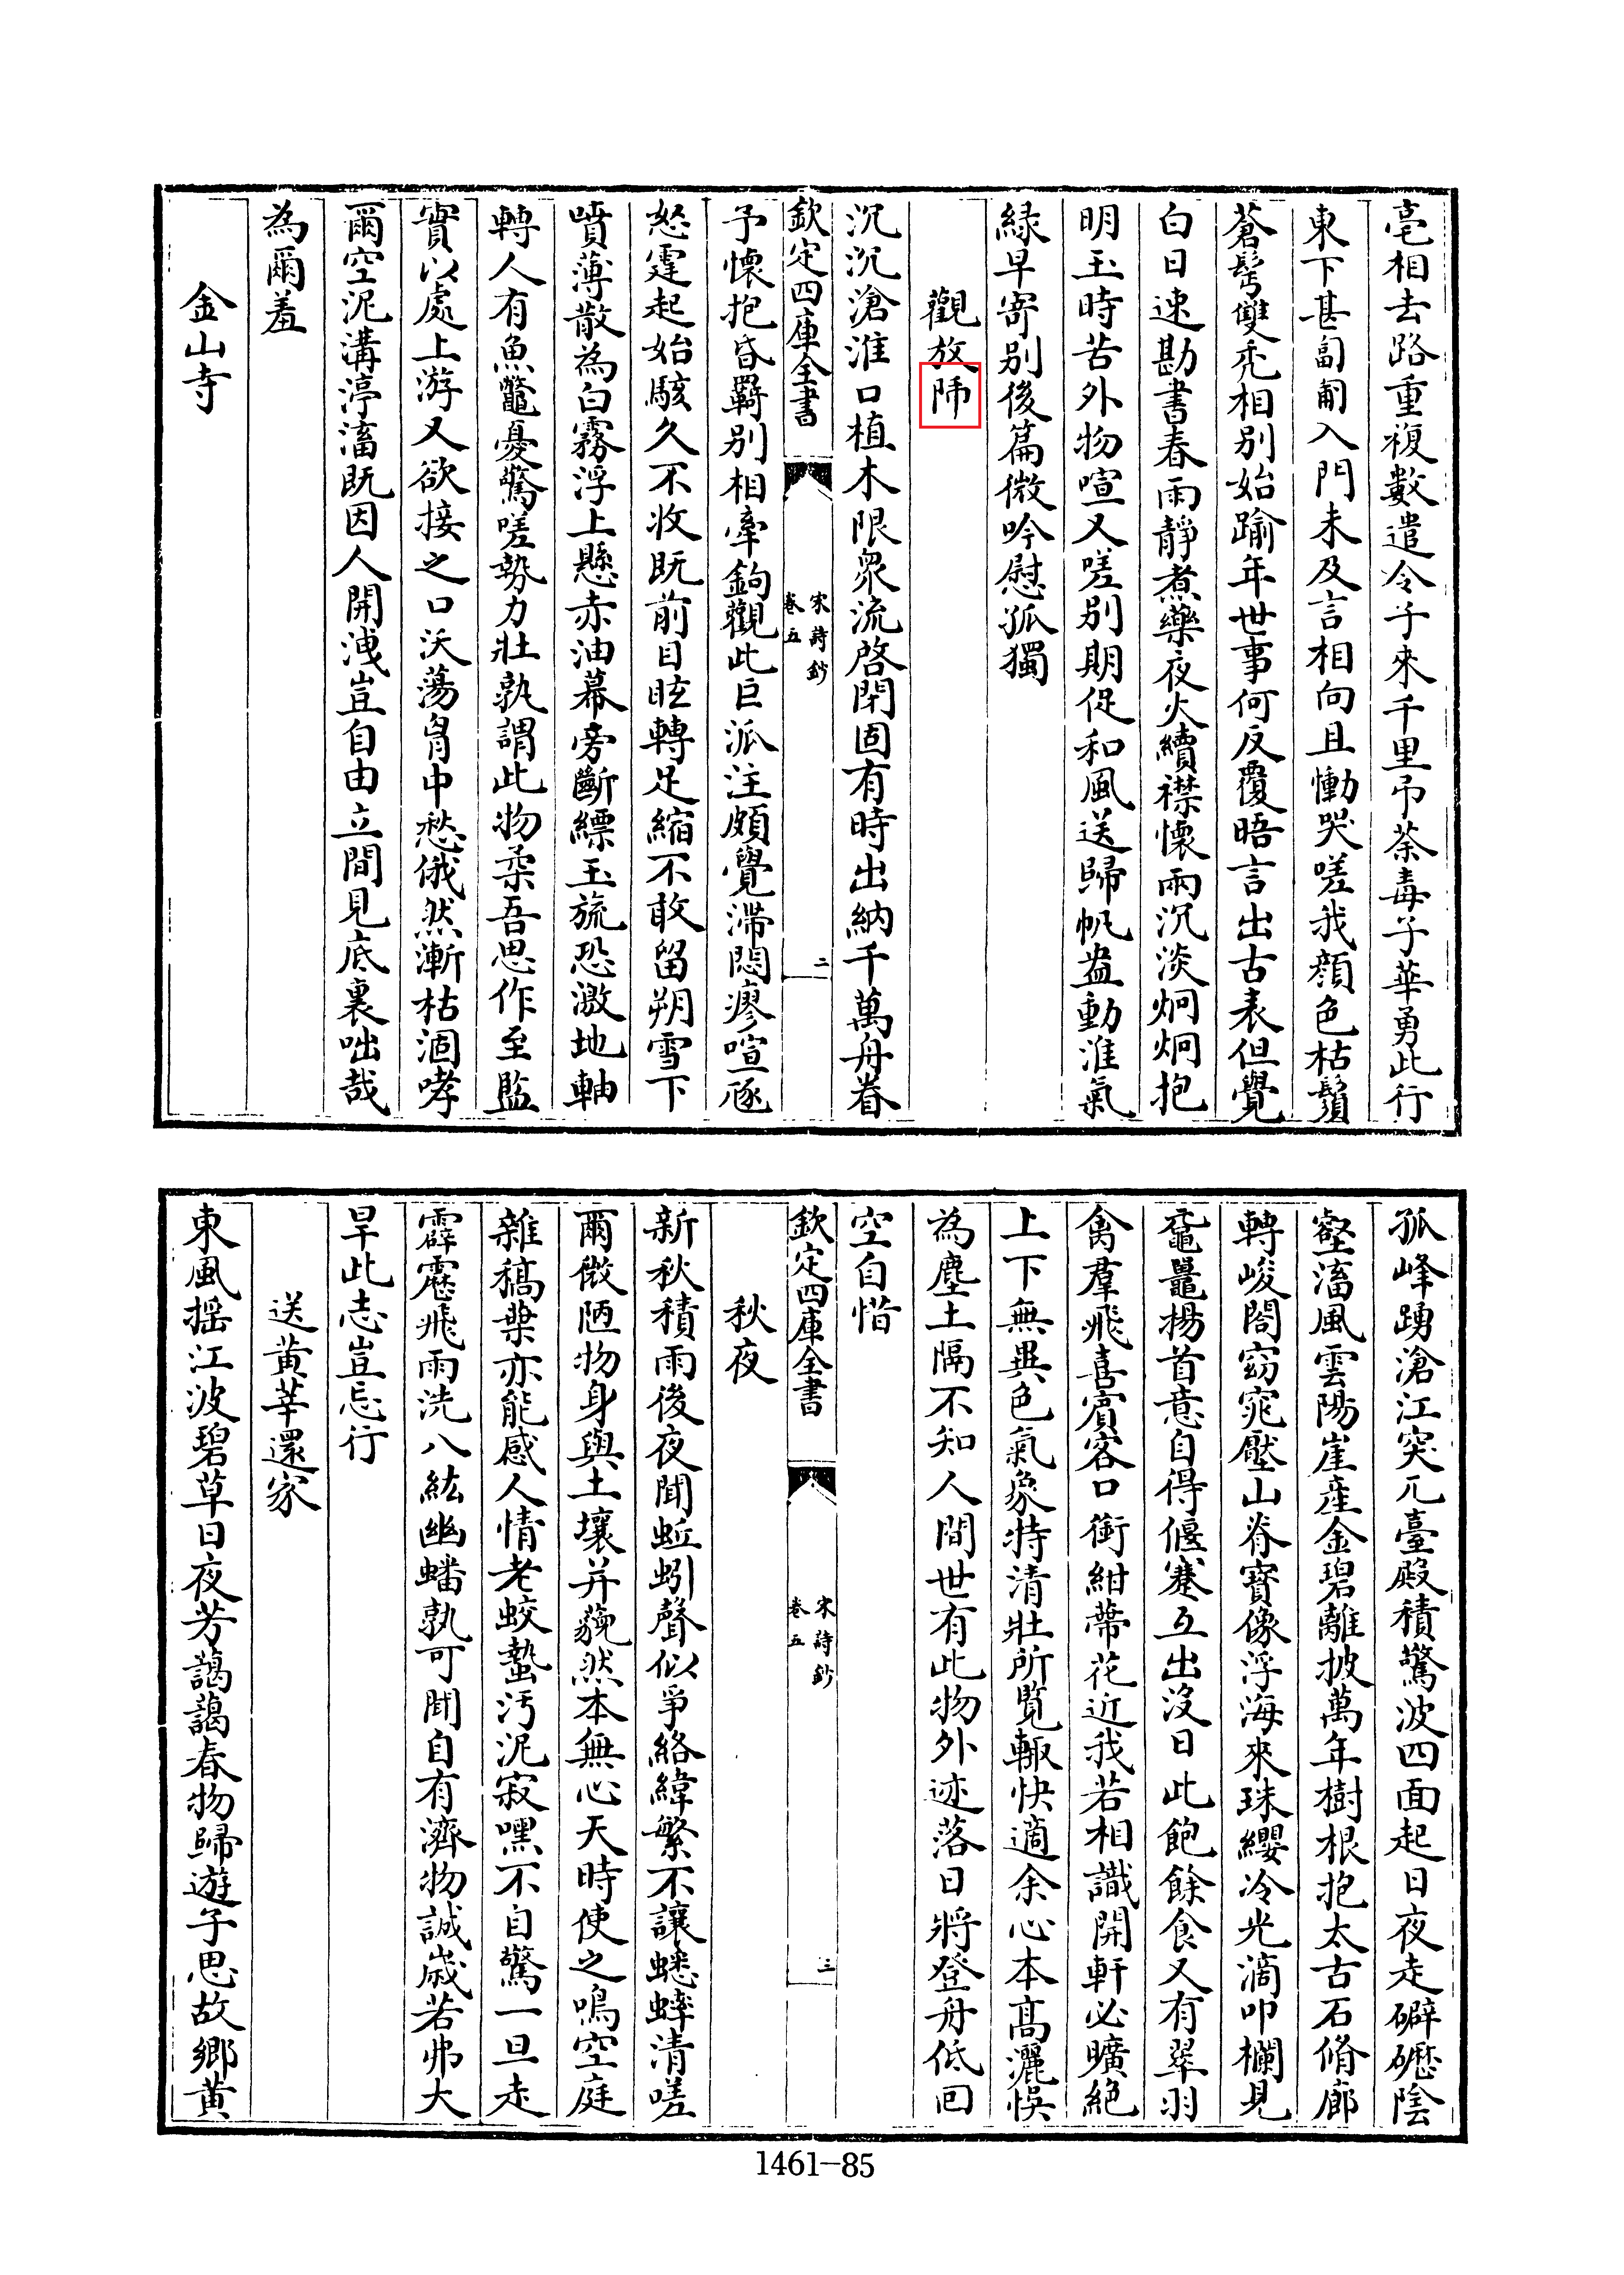 亳相去路重複數遣令子來千里弔荼毒子華勇此行
東下甚匐匍入門未及言相向且慟哭嗟我顏色枯鬚
蒼髩雙禿相別始踰年世事何反覆晤言出古表但覺
白日速勘書春雨靜煮藥夜火續襟懷兩沉淡炯炯抱
明玉時苦外物喧又嗟別期促和風送歸帆盎動淮氣
緑早寄別後篇微吟慰孤獨
觀放
沉沉滄淮口植木限衆流啓閉固有時出納千萬舟眷
欽定四庫全書
宋詩鈔
卷五
二
予懷抱昏羇別相牽鉤觀此巨派注頗覺滯悶瘳喧豗
怒霆起始駭久不收既前目眩轉足縮不敢留朔雪下
噴薄散為白霧浮上懸赤油幕旁斷縹玉旒恐激地軸
轉人有魚鼈憂驚嗟勢力壯孰謂此物柔吾思作至監
實以處上游又欲接之口沃蕩胷中愁俄然漸枯涸哮
爾空泥溝渟滀既因人開洩豈自由立間見底裏咄哉
為爾羞
金山寺
孤峰踴滄江突兀臺殿積驚波四面起日夜走礔礰陰
壑滀風雲陽崖產金碧離披萬年樹根抱太古石脩廊
轉峻閣窈窕壓山脊寶像浮海來珠纓冷光滴叩欄見
黿鼉揚首意自得偃蹇互出沒日此飽餘食又有翠羽
禽羣飛喜賓客口銜紺蔕花近我若相識開軒必曠絶
上下無異色氣象特清壯所覧輙快適余心本髙灑悞
為塵土隔不知人間世有此物外迹落日將登舟低回
空自惜
欽定四庫全書
宋詩鈔
卷五
三
秋夜
新秋積雨後夜聞蚯蚓聲似爭絡緯繁不讓蟋蟀清嗟
爾微陋物身與土壤并藐然本無心天時使之鳴空庭
雜槁葉亦能感人情老蛟蟄汚泥寂嘿不自驚一旦走
霹靂飛雨洗八紘幽蟠孰可聞自有濟物誠嵗若弗大
旱此志豈忘行
送黄莘還家
東風揺江波碧草日夜芳藹藹春物歸遊子思故鄉黄
1461-85